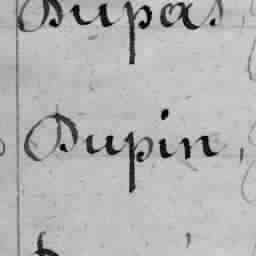 Dupas,
Dupin,